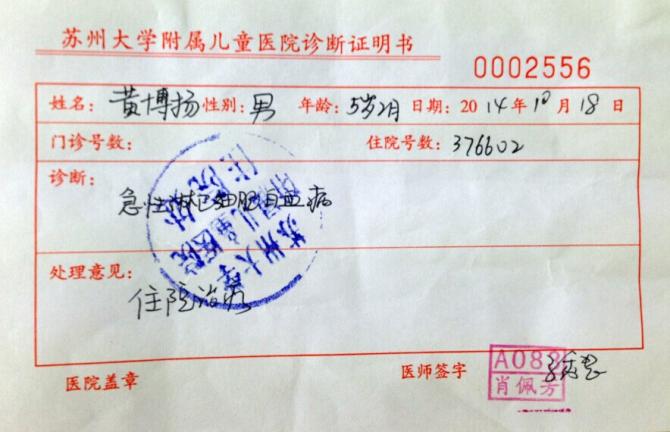 苏州大学附属儿童医院诊断证明书
0002556
姓名：黄博扬 性别：男 年龄：5岁2月 日期：2014年10月18日
门诊号数： 住院号数：376602
诊断：
急性淋巴细胞白血病
处理意见：
住院治疗
苏州大学
附属儿童医院
住院处
医院盖章 医师签字
A088
肖佩芳